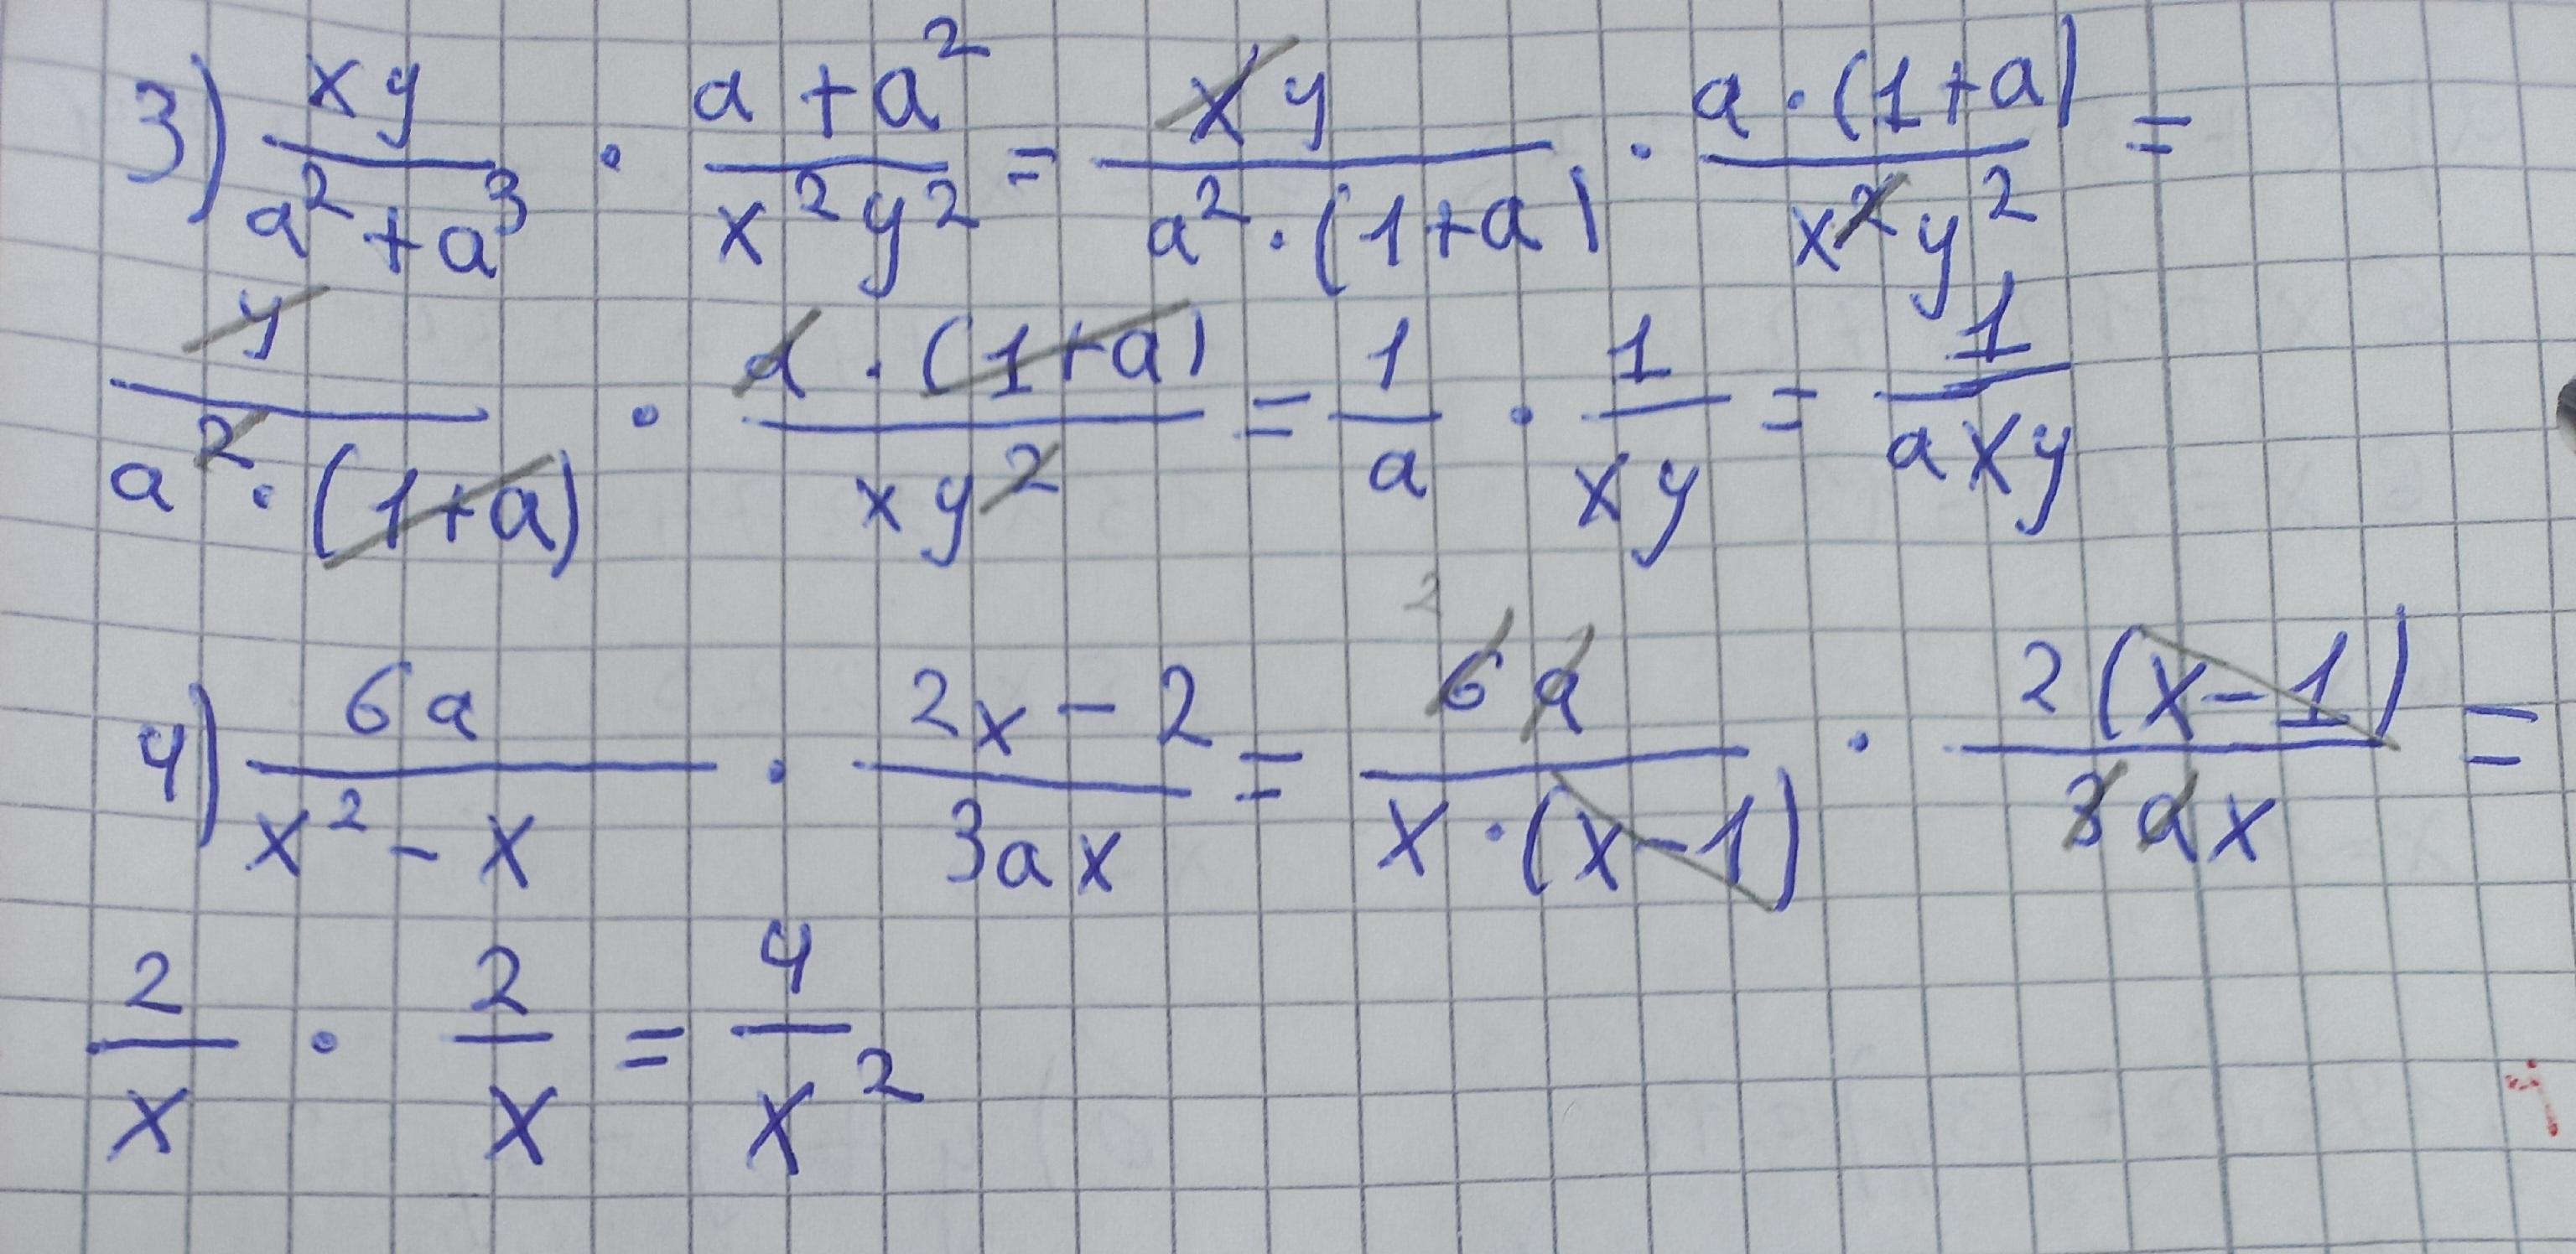 3) xy/(a²+a³) · (a+a²)/(x²y²) = xy/(a²·(1+a)) · a·(1+a)/(x²y²) =
y/(a²·(1+a)) · a·(1+a)/(xy²) = 1/a · 1/(xy) = 1/(axy)
4) 6a/(x²-x) · (2x-2)/(3ax) = ²6a/(x·(x-1)) · 2(x-1)/(3ax) =
2/x · 2/x = 4/x²